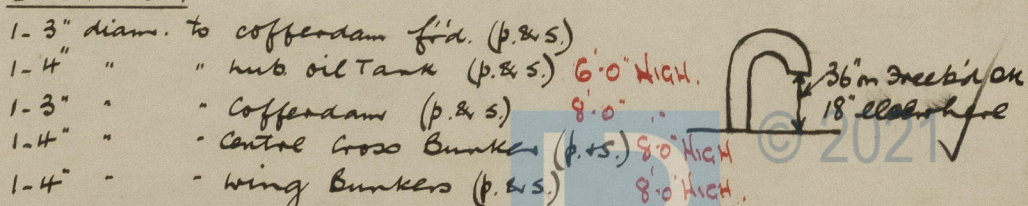 1- 3" diam. to cofferdam fr'd. (p. & s.)
1- 4" " " Lub. oil Tank (p. & s.) 6'.0" HIGH.
1- 3" " " Cofferdam (p. & s.) 8'.0" "
1- 4" " " Centre Cross Bunker (p. + s.) 8'.0" HIGH
1- 4" " " Wing Bunkers (p. & s.) 8'.0" HIGH.
36" on Freeb'd DK
18" elsewhere
© 2021